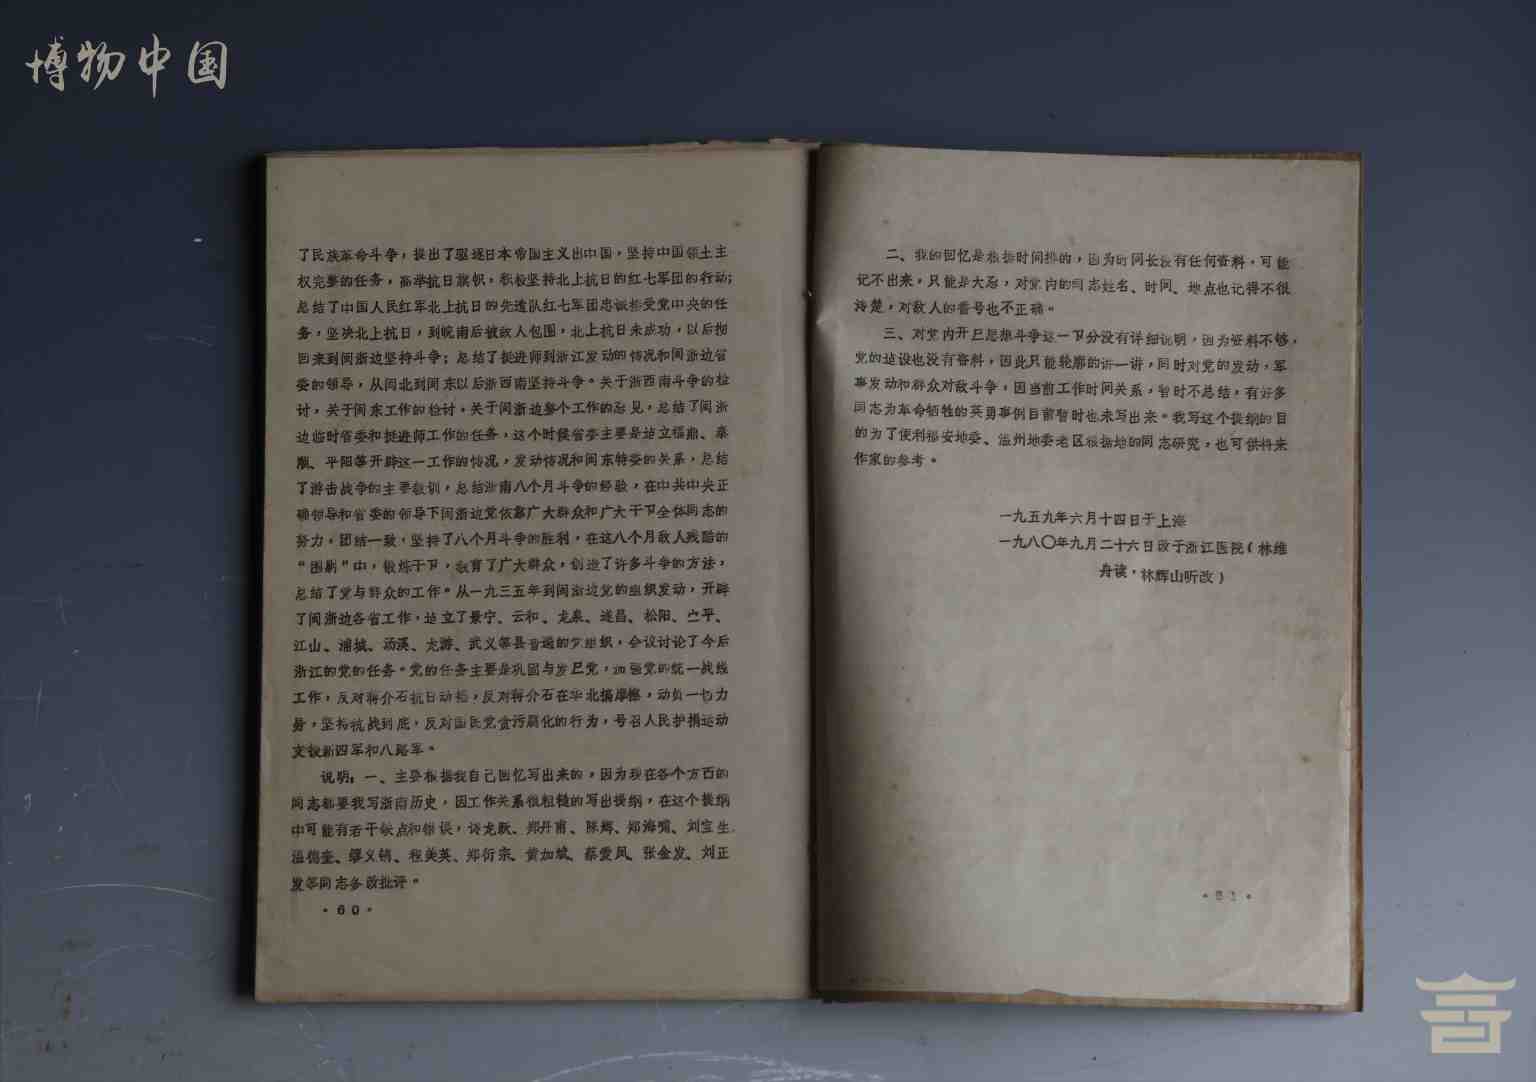 博物中国
了民族革命斗争，提出了驱逐日本帝国主义出中国，坚持中国领土主
权完整的任务，高举抗日旗帜，积极坚持北上抗日的红七军团的行动；
总结了中国人民红军北上抗日的先遣队红七军团忠诚接受党中央的任
务，坚决北上抗日，到皖南后被敌人包围，北上抗日未成功，以后撤
回来到闽浙边坚持斗争；总结了挺进师到浙江发动的情况和闽浙边省
委的领导，从闽北到闽东以后浙西南坚持斗争。关于浙西南斗争的检
讨，关于闽东工作的检讨，关于闽浙边整个工作的意见，总结了闽浙
边临时省委和挺进师工作的任务，这个时候省委主要是建立福鼎、泰
顺、平阳等开辟这一工作的情况，发动情况和闽东特委的关系，总结
了游击战争的主要教训，总结浙南八个月斗争的经验，在中共中央正
确领导和省委的领导下闽浙边党依靠广大群众和广大干卫全体同志的
努力，团结一致，坚持了八个月斗争的胜利，在这八个月敌人残酷的
“围剿”中，锻炼干卫，教育了广大群众，创造了许多斗争的方法，
总结了党与群众的工作。从一九三五年到闽浙边党的组织发动，开辟
了闽浙边各省工作，建立了景宁、云和、龙泉、遂昌、松阳、平、
江山、浦城、汤溪、龙游、武义等县普遍的党组织，会议讨论了今后
浙江的党的任务。党的任务主要是巩固与发展党，加强党的统一战线
工作，反对蒋介石抗日动摇，反对蒋介石在华北搞摩擦，动员一切力
量，坚持抗战到底，反对国民党贪污腐化的行为，号召人民护捐运动
支援新四军和八路军。
说明：一、主要根据我自己回忆写出来的，因为现在各个方面的
同志都要我写浙南历史，因工作关系很粗糙的写出提纲，在这个提纲
中可能有若干缺点和错误，请龙跃、郑丹甫、陈辉、郑海啸、刘宝生、
温德奎、缪义锦、程美英、郑衍宗、黄加斌、蔡爱凤、张金发、刘正
发等同志多改批评。
·60·
二、我的回忆是根据时间排的，因为时间长没有任何资料，可能
记不出来，只能是大意，对党内的同志姓名、时间、地点也记得不很
清楚，对敌人的番号也不正确。
三、对党内开展思想斗争这一卫分没有详细说明，因为资料不够，
党的建设也没有资料，因此只能轮廓的讲一讲，同时对党的发动，军
事发动和群众对敌斗争，因当前工作时间关系，暂时不总结，有好多
同志为革命牺牲的英勇事例目前暂时也未写出来。我写这个提纲的目
的为了便利福安地委、温州地委老区根据地的同志研究，也可供将来
作家的参考。
一九五九年六月十四日于上海
一九八〇年九月二十六日改于浙江医院（林维
舟读，林辉山听改）